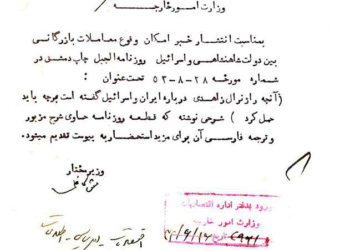 وزارت امور خارجه
بمناسبت انتشار خبر امکان وقوع معاملات بازرگانی
بین دولت شاهنشاهی و اسرائیل روزنامه الجبل چاپ دمشق در
شماره مورخه ۲۸-۸-۵۲ تحت عنوان :
(آنچه را ژنرال زاهدی درباره ایران و اسرائیل گفته است برچه باید
حمل کرد ) شرحی نوشته که قطعه روزنامه حاوی شرح مزبور
و ترجمه فارسی آن برای مزید استحضار به پیوست تقدیم میشود.
وزیر مختار
ورود بدفتر اداره اقتصادیات
وزارت امور خارجه